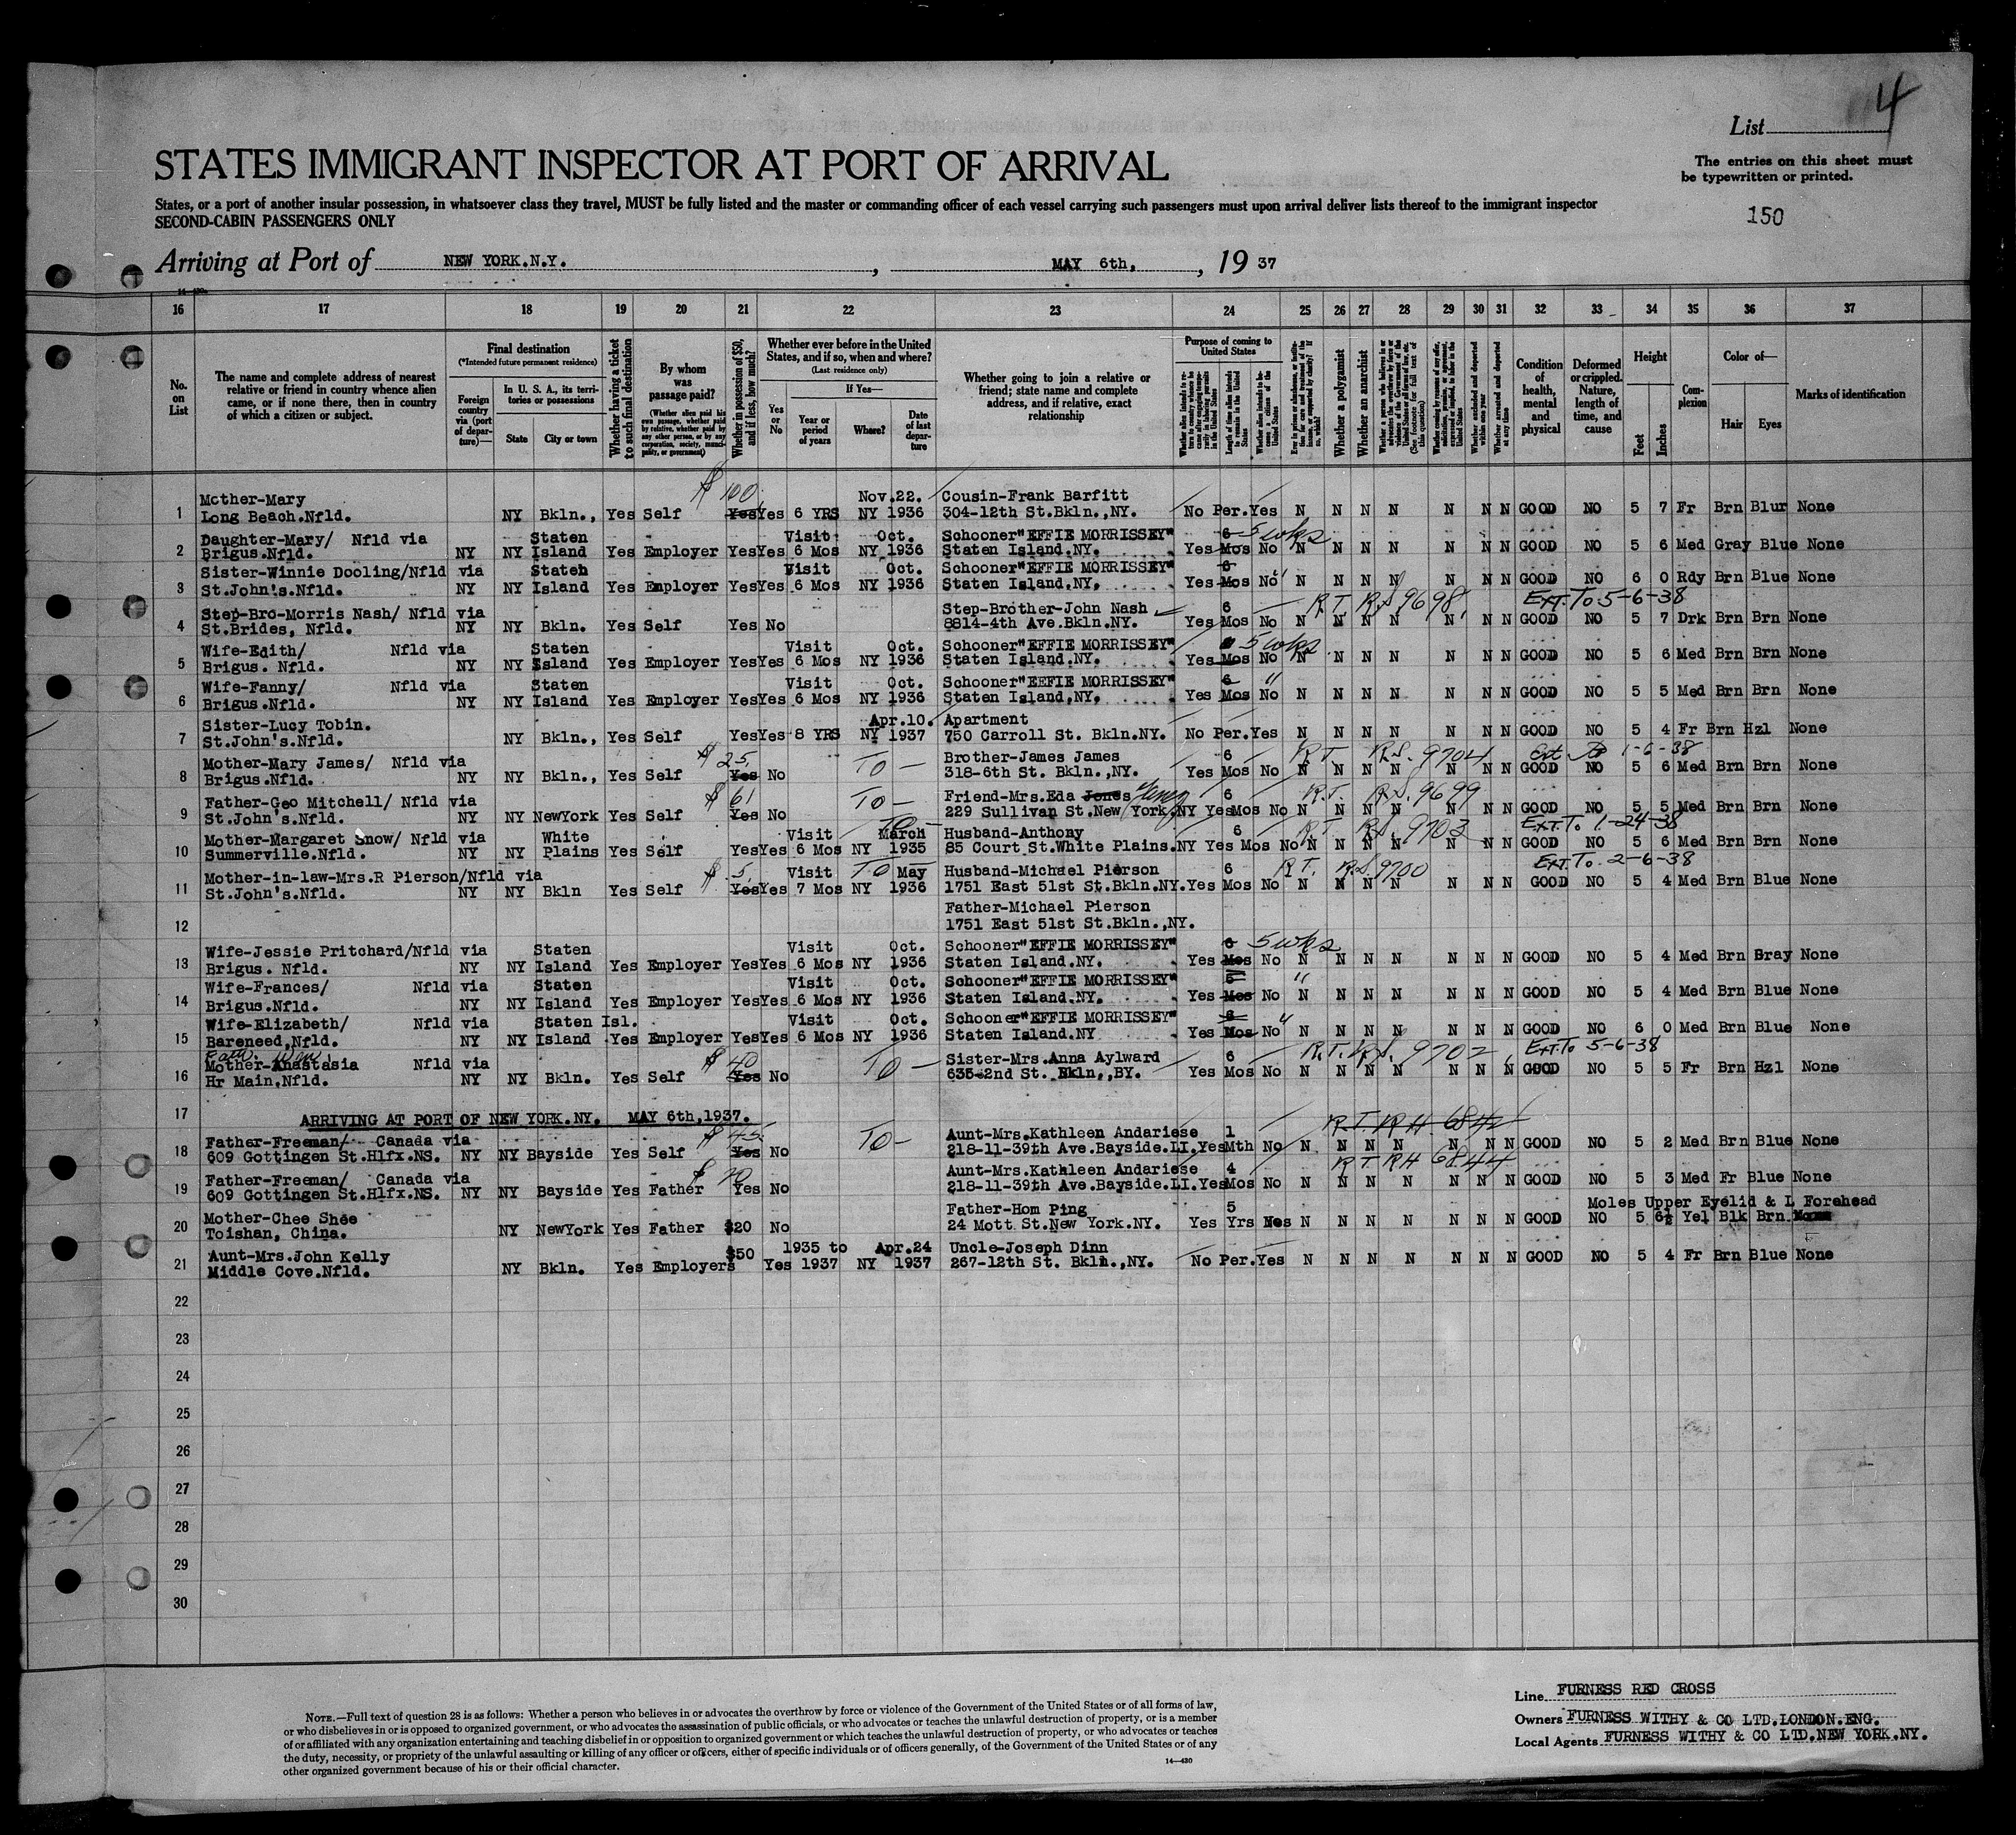 4
List
The entries on this sheet must
be typewritten or printed.
STATES IMMIGRANT INSPECTOR AT PORT OF ARRIVAL
States, or a port of another insular possession, in whatsoever class they travel, MUST be fully listed and the master or commanding officer of each vessel carrying such passengers must upon arrival deliver lists thereof to the immigrant inspector
SECOND-CABIN PASSENGERS ONLY
150
Arriving at Port of NEW YORK.N.Y. , MAY 6th, , 19 37
16 17 18 19 20 21 22 23 24 25 26 27 28 29 30 31 32 33 34 35 36 37
No. on List
The name and complete address of nearest relative or friend in country whence alien came, or if none there, then in country of which a citizen or subject.
Final destination
(*Intended future permanent residence)
Foreign country via (port of departure)—
In U. S. A., its territories or possessions
State City or town
Whether having a ticket to such final destination
By whom was passage paid?
(Whether alien paid his own passage, whether paid by relative, whether paid by any other person, or by any corporation, society, municipality, or government)
Whether in possession of $50, and if less, how much?
Whether ever before in the United States, and if so, when and where?
(Last residence only)
Yes or No
If Yes—
Year or period of years Where? Date of last departure
Whether going to join a relative or friend; state name and complete address, and if relative, exact relationship
Purpose of coming to United States
Length of time alien intends to remain in the United States
Whether a polygamist
Whether an anarchist
Condition of health, mental and physical
Deformed or crippled. Nature, length of time, and cause
Height
Feet Inches
Complexion
Color of—
Hair Eyes
Marks of identification
$100
Mother-Mary Nov.22. Cousin-Frank Barfitt
1 Long Beach.Nfld. NY Bkln., Yes Self Yes Yes 6 YRS NY 1936 304-12th St.Bkln.,NY. No Per.Yes N N N N N N N GOOD NO 5 7 Fr Brn Blur None
Daughter-Mary/ Nfld via Staten Visit Oct. Schooner"EFFIE MORRISSEY" 6 5 wks
2 Brigus.Nfld. NY NY Island Yes Employer Yes Yes 6 Mos NY 1936 Staten Island.NY. Yes Mos No N N N N N N N GOOD NO 5 6 Med Gray Blue None
Sister-Winnie Dooling/Nfld via Staten Visit Oct. Schooner"EFFIE MORRISSEY" 6 "
3 St.John's.Nfld. NY NY Island Yes Employer Yes Yes 6 Mos NY 1936 Staten Island.NY, Yes Mos No N N N N N N N GOOD NO 6 0 Rdy Brn Blue None
Step-Bro-Morris Nash/ Nfld via Step-Brother-John Nash 6 R.T. R.S. 9698 Ext. To 5-6-38
4 St.Brides, Nfld. NY NY Bkln. Yes Self Yes No 8814-4th Ave.Bkln.NY. Yes Mos No N N N N N N N GOOD NO 5 7 Drk Brn Brn None
Wife-Edith/ Nfld via Staten Visit Oct. Schooner"EFFIE MORRISSEY" 5 wks
5 Brigus. Nfld. NY NY Island Yes Employer Yes Yes 6 Mos NY 1936 Staten Island.NY. Yes Mos No N N N N N N N GOOD NO 5 6 Med Brn Brn None
Wife-Fanny/ Nfld via Staten Visit Oct. Schooner"EEFIE MORRISSEY" 6 "
6 Brigus.Nfld. NY NY Island Yes Employer Yes Yes 6 Mos NY 1936 Staten Island,NY, Yes Mos No N N N N N N N GOOD NO 5 5 Med Brn Brn None
Sister-Lucy Tobin. Apr.10. Apartment
7 St.John's.Nfld. NY Bkln., Yes Self Yes Yes 8 YRS NY 1937 750 Carroll St. Bkln.NY. No Per.Yes N N N N N N N GOOD NO 5 4 Fr Brn Hzl None
Mother-Mary James/ Nfld via $25. To — Brother-James James 6 R.T. R.S. 9704 Ext. To 1-6-38
8 Brigus.Nfld. NY NY Bkln., Yes Self Yes No 318-6th St. Bkln.,NY. Yes Mos No N N N N N N N GOOD NO 5 6 Med Brn Brn None
Father-Geo Mitchell/ Nfld via $61 To — Friend-Mrs.Eda Jones 6 R.T. R.S. 9699
9 St.John's.Nfld. NY NY NewYork Yes Self Yes No 229 Sullivan St.New York.NY Yes Mos No N N N N N N N GOOD NO 5 5 Med Brn Brn None
Mother-Margaret Snow/ Nfld via White Visit To — March Husband-Anthony 6 R.T. R.S. 9703 Ext. To 1-24-38
10 Summerville.Nfld. NY NY Plains Yes Self Yes Yes 6 Mos NY 1935 85 Court St.White Plains.NY Yes Mos No N N N N N N N GOOD NO 5 6 Med Brn Brn None
Mother-in-law-Mrs.R Pierson/Nfld via $5. Visit To May Husband-Michael Pierson 6 R.T. R.S. 9700 Ext. To 2-6-38
11 St.John's.Nfld. NY NY Bkln Yes Self Yes Yes 7 Mos NY 1936 1751 East 51st St.Bkln.NY. Yes Mos No N N N N N N N GOOD NO 5 4 Med Brn Blue None
Father-Michael Pierson
12 1751 East 51st St.Bkln.,NY.
Wife-Jessie Pritchard/Nfld via Staten Visit Oct. Schooner"EFFIE MORRISSEY" 6 5 wks
13 Brigus. Nfld. NY NY Island Yes Employer Yes Yes 6 Mos NY 1936 Staten Island.NY. Yes Mos No N N N N N N N GOOD NO 5 4 Med Brn Gray None
Wife-Frances/ Nfld via Staten Visit Oct. Schooner"EFFIE MORRISSEY" 6 "
14 Brigus.Nfld. NY NY Island Yes Employer Yes Yes 6 Mos NY 1936 Staten Island.NY. Yes Mos No N N N N N N N GOOD NO 5 4 Med Brn Blue None
Wife-Elizabeth/ Nfld via Staten Isl. Visit Oct. Schooner"EFFIE MORRISSEY" 6 "
15 Bareneed,Nfld. NY NY Island Yes Employer Yes Yes 6 Mos NY 1936 Staten Island.NY Yes Mos No N N N N N N N GOOD NO 6 0 Med Brn Blue None
Mother-Anastasia Nfld via $40 To — Sister-Mrs.Anna Aylward 6 R.T. R.S. 9702 Ext. To 5-6-38
16 Hr Main,Nfld. NY NY Bkln. Yes Self Yes No 635-2nd St. Bkln,,BY. Yes Mos No N N N N N N N GOOD NO 5 5 Fr Brn Hzl None
17 ARRIVING AT PORT OF NEW YORK.NY. MAY 6th,1937.
R.T. R.H. 6842
Father-Freeman/ Canada via $45 To — Aunt-Mrs.Kathleen Andariese 1
18 609 Gottingen St.Hlfx.NS. NY NY Bayside Yes Self Yes No 218-11-39th Ave.Bayside.LI.Yes Mth No N N N N N N N GOOD NO 5 2 Med Brn Blue None
Father-Freeman/ Canada via $20 Aunt-Mrs.Kathleen Andariese 4 R.T. R.H. 6844
19 609 Gottingen St.Hlfx.NS. NY NY Bayside Yes Father Yes No 218-11-39th Ave.Bayside.LI.Yes Mos No N N N N N N N GOOD NO 5 3 Med Fr Blue None
Mother-Chee Shee Father-Hom Ping 5 Moles Upper Eyelid & L Forehead
20 Toishan, China. NY NewYork Yes Father $20 No 24 Mott St.New York.NY. Yes Yrs N N N N N N N GOOD NO 5 6½ Yel Blk Brn
Aunt-Mrs.John Kelly $50 1935 to Apr.24 Uncle-Joseph Dinn
21 Middle Cove.Nfld. NY Bkln. Yes Employers Yes 1937 NY 1937 267-12th St. Bkln.,NY. No Per.Yes N N N N N N N GOOD NO 5 4 Fr Brn Blue None
22
23
24
25
26
27
28
29
30
NOTE.—Full text of question 28 is as follows: Whether a person who believes in or advocates the overthrow by force or violence of the Government of the United States or of all forms of law,
or who disbelieves in or is opposed to organized government, or who advocates the assassination of public officials, or who advocates or teaches the unlawful destruction of property, or is a member
of or affiliated with any organization entertaining and teaching disbelief in or opposition to organized government or which teaches the unlawful destruction of property, or who advocates or teaches
the duty, necessity, or propriety of the unlawful assaulting or killing of any officer or officers, either of specific individuals or of officers generally, of the Government of the United States or of any
other organized government because of his or their official character.
14—430
Line FURNESS RED CROSS
Owners FURNESS WITHY & CO LTD.LONDON.ENG.
Local Agents FURNESS WITHY & CO LTD.NEW YORK.NY.